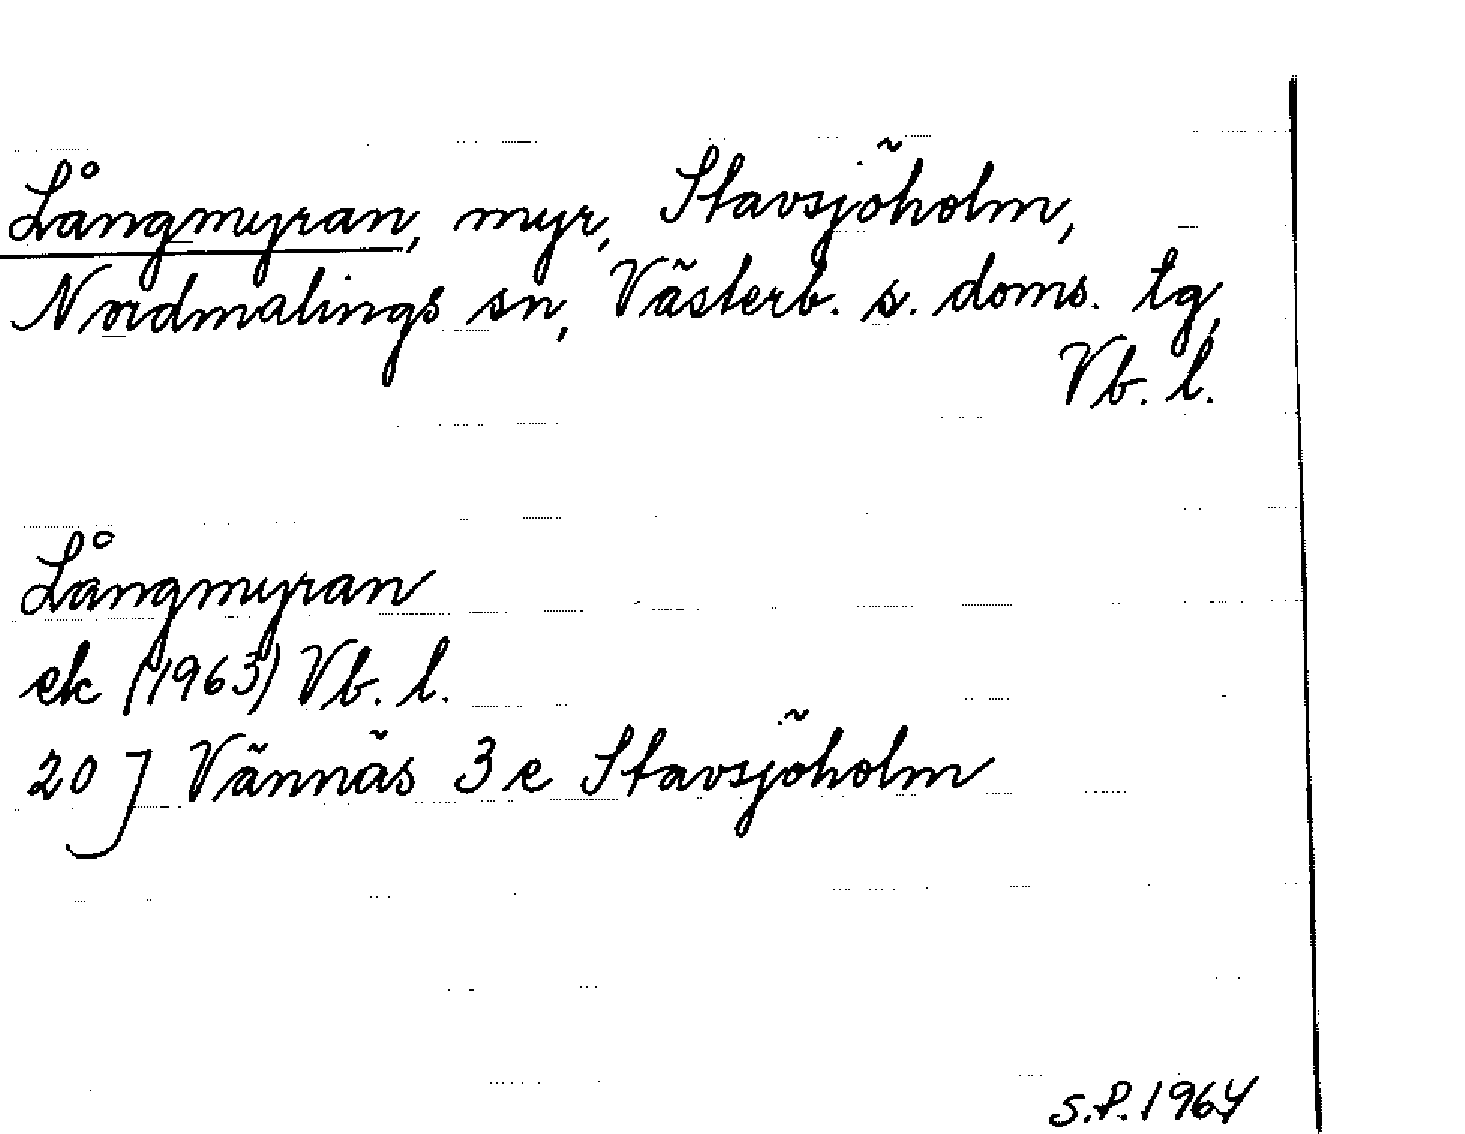 Långmyran, myr, Stavsjöholm,
Nordmalings sn, Västerb. s. doms. tg,
Vb. l.
Långmyran
ek (1963) Vb. l.
20 J Vännäs 3 e Stavsjöholm
S.P. 1964